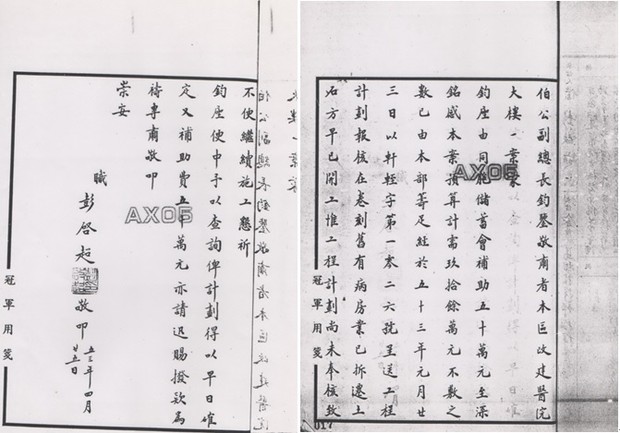 伯公副總長鈞鑒敬肅者本區改建醫院
大樓一案蒙
鈞座由同胞儲蓄會補助五十萬元至深
銘感本案預算計需玖拾餘萬元不敷之
數已由本部籌足經於五十三年元月廿
三日以軒輊字第一零二六號呈送工程
計劃報核在卷刻舊有病房業已拆遷土
石方早已開工惟工程計劃尚未奉核致
冠軍用箋
AX05
017
不便繼續施工懇祈
鈞座便中予以查詢俾計劃得以早日確
定又補助費五十萬元亦請迅賜撥款為
禱專肅敬叩
崇安
職彭啓超敬叩
五三年四月
廿五日
冠軍用箋
AX05